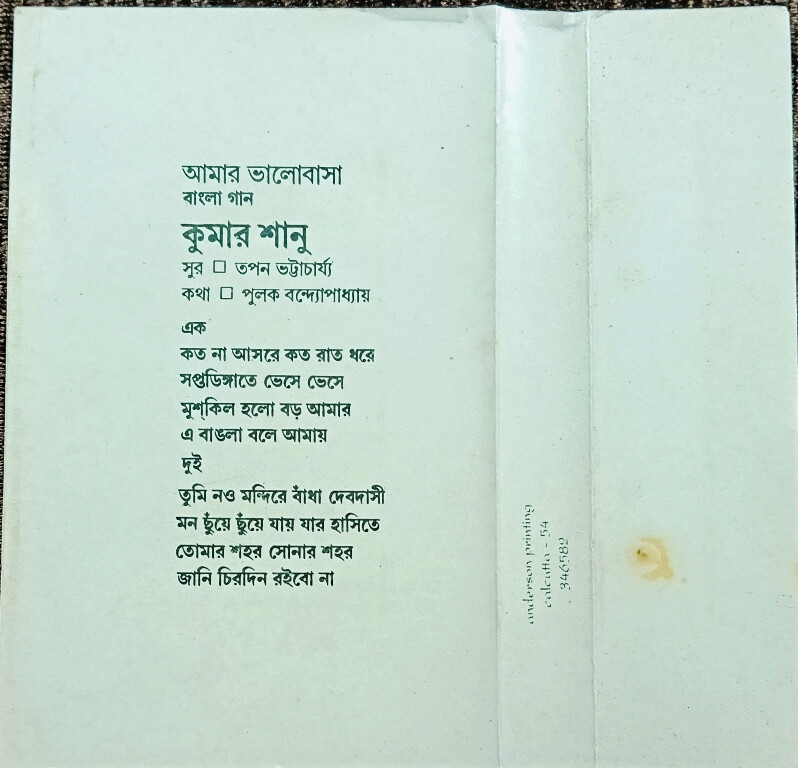 আমার ভালোবাসা
বাংলা গান
কুমার শানু
সুর □ তপন ভট্টাচার্য্য
কথা □ পুলক বন্দ্যোপাধ্যায়
এক
কত না আসরে কত রাত ধরে
সপ্তডিঙ্গাতে ভেসে ভেসে
মুশ্‌কিল হলো বড় আমার
এ বাঙলা বলে আমায়
দুই
তুমি নও মন্দিরে বাঁধা দেবদাসী
মন ছুঁয়ে ছুঁয়ে যায় যার হাসিতে
তোমার শহর সোনার শহর
জানি চিরদিন রইবো না
anderson printing
calcutta - 54
346582